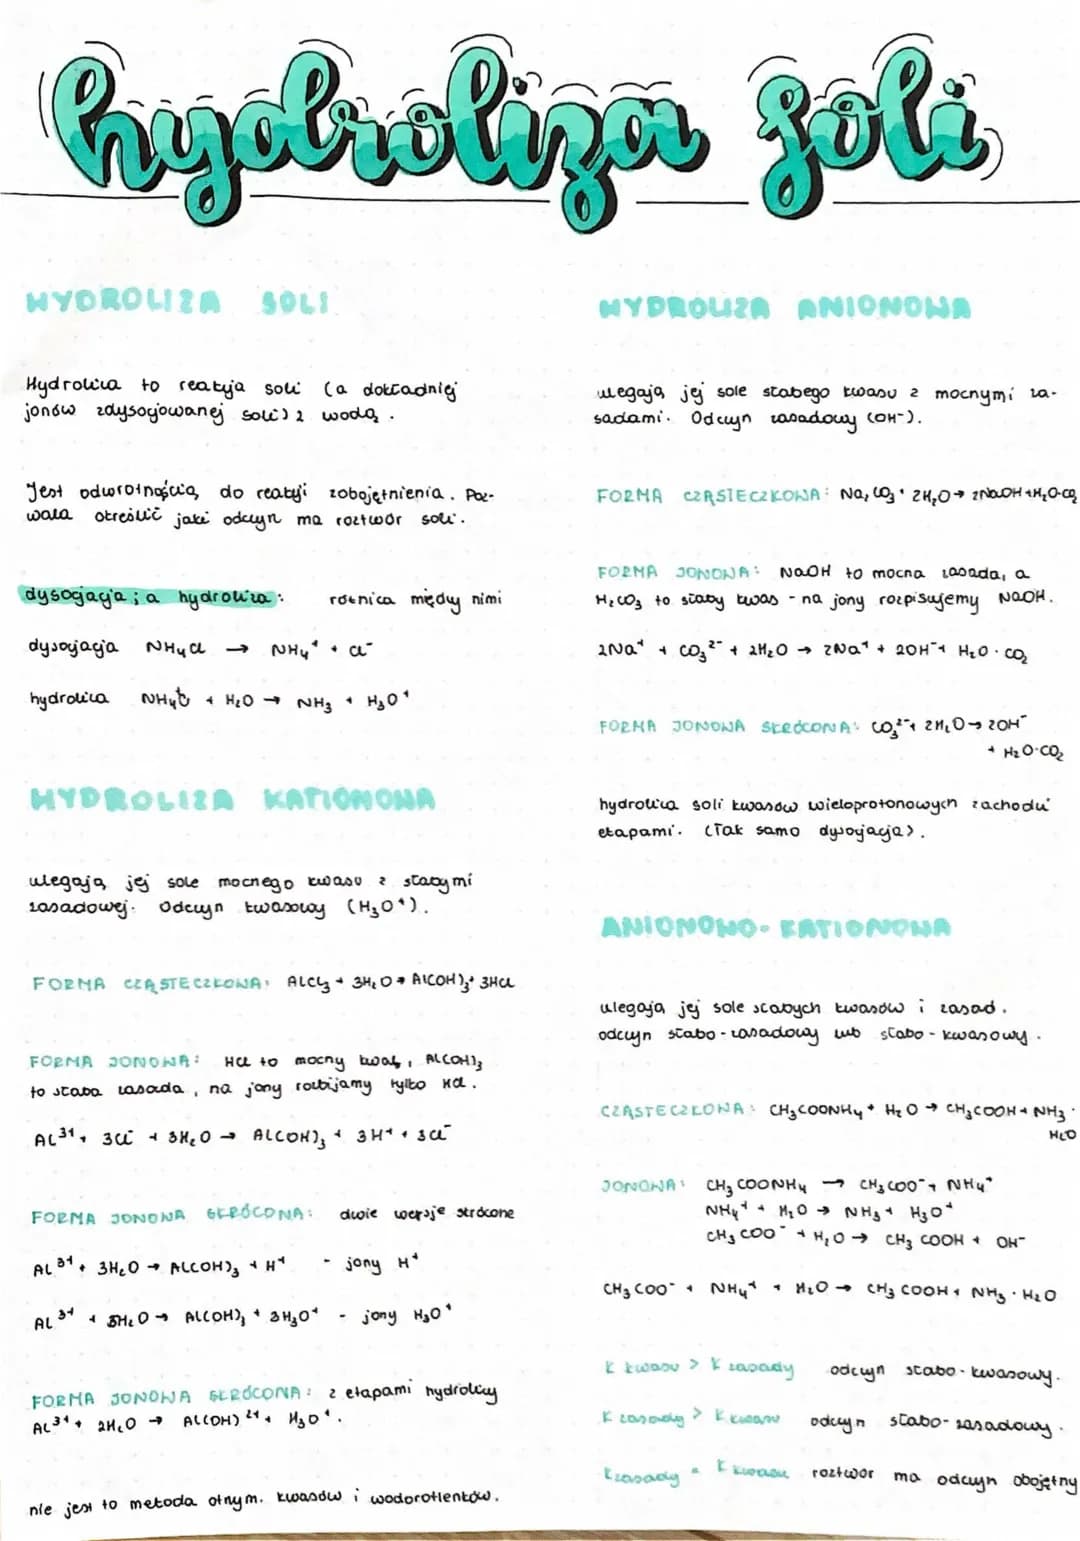 hydroliza soli
HYDROLIZA SOLI
Hydroliza to reakcja soli (a dokładniej
jonów zdysocjowanej soli) z wodą.
Jest odwrotnością do reakcji zobojętnienia. Poz-
wala określić jaki odczyn ma roztwór soli.
dysocjacja ; a hydroliza : różnica między nimi
dysocjacja NH₄Cl → NH₄⁺ + Cl⁻
hydroliza + H₂O → NH₃ + H₃O⁺
HYDROLIZA KATIONOWA
ulegają jej sole mocnego kwasu z słabymi
zasadowej. Odczyn kwasowy (H₃O⁺).
FORMA CZĄSTECZKOWA: AlCl₃ + 3H₂O → Al(OH)₃ + 3HCl
FORMA JONOWA: HCl to mocny kwas, Al(OH)₃
to słaba zasada, na jony rozbijamy tylko HCl.
Al³⁺ + 3Cl⁻ + 3H₂O → Al(OH)₃ + 3H⁺ + 3Cl⁻
FORMA JONOWA SKRÓCONA: dwie wersje skrócone
Al³⁺ + 3H₂O → Al(OH)₃ + H⁺ - jony H⁺
Al³⁺ + H₂O → Al(OH)₃ + 3H₃O⁺ - jony H₃O⁺
FORMA JONOWA SKRÓCONA: z etapami hydrolizy
Al³⁺ + 2H₂O → Al(OH)²⁺ + H₃O⁺.
nie jest to metoda otrzym. kwasów i wodorotlenków.
HYDROLIZA ANIONOWA
ulegają jej sole słabego kwasu z mocnymi za-
sadami. Odczyn zasadowy (OH⁻).
FORMA CZĄSTECZKOWA: Na₂CO₃ + 2H₂O → 2NaOH + H₂O·CO₂
FORMA JONOWA: NaOH to mocna zasada, a
H₂CO₃ to słaby kwas - na jony rozpisujemy NaOH.
2Na⁺ + CO₃²⁻ + 2H₂O → 2Na⁺ + 2OH⁻ + H₂O·CO₂
FORMA JONOWA SKRÓCONA: CO₃²⁻ + 2H₂O → 2OH⁻
+ H₂O·CO₂
hydroliza soli kwasów wieloprotonowych zachodzi
etapami. (Tak samo dysocjacja).
ANIONOWO-KATIONOWA
ulegają jej sole słabych kwasów i zasad.
odczyn słabo-zasadowy lub słabo-kwasowy.
CZĄSTECZKOWA: CH₃COONH₄ + H₂O → CH₃COOH + NH₃·
H₂O
JONOWA: CH₃COONH₄ → CH₃COO⁻ + NH₄⁺
NH₄⁺ + H₂O → NH₃ + H₃O⁺
CH₃COO⁻ + H₂O → CH₃COOH + OH⁻
CH₃COO⁻ + NH₄⁺ + H₂O → CH₃COOH + NH₃·H₂O
K kwasu > K zasady odczyn słabo-kwasowy.
K zasady > K kwasu odczyn słabo-zasadowy.
K zasady = K kwasu roztwór ma odczyn obojętny